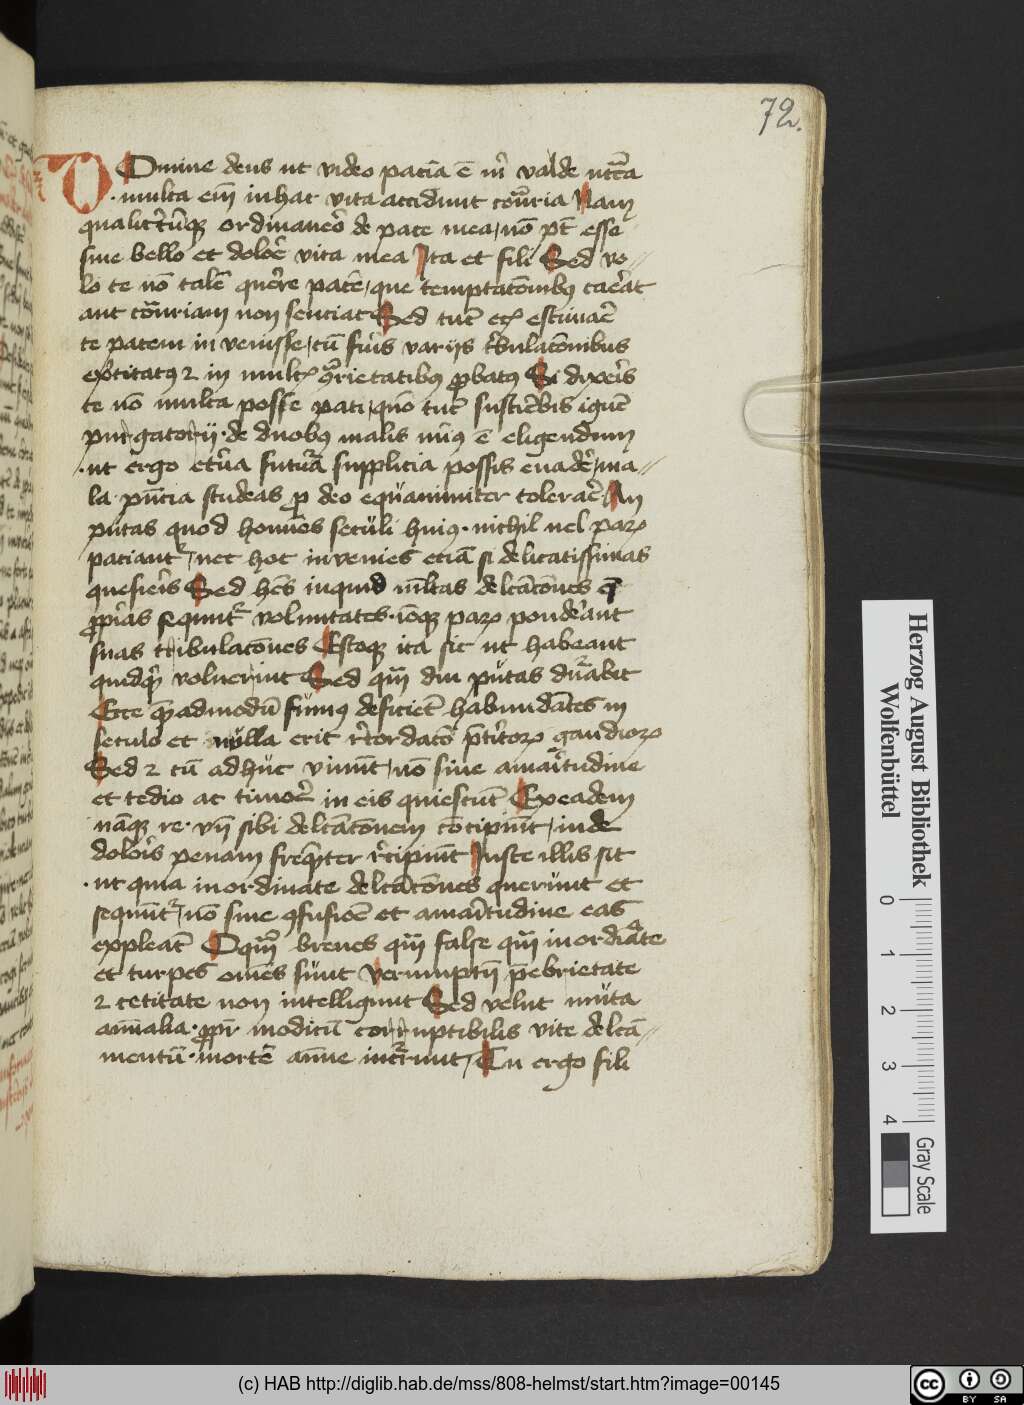 72.
Domine deus ut video pacia ē m̄ valde nccīa
multa em̄ in hac vita accidunt cōtria Nam
qualitcūqȝ ordinauero de pace mea, nō pt̄ esse
sine bello et dolore vita mea Ita et fili Sed vo//
lo te nō talē querere pacē, que temptacōibꝰ careat
aut cōtrariam non senciat Sed tuc̄ eciā estimare
te pacem in venisse, cū fūis varijs tribulacōnibus
exercitatꝰ ⁊ in multis ꝯtrietatibꝰ ꝓbatꝰ Si dixeris
te nō multa posse pati, quō tūc sustinebis ignē
purgatorij · de duobꝰ malis minꝰ ē eligendum
· ut ergo eterna futura supplicia possis euadere, ma//
la pn̄cia studeas ꝓ deo equanimiter tolerare An
putas quod homines seculi huiꝰ · nichil uel paꝝ
paciant̄, nec hoc invenies eciā si delicatissimas
quesieris Sed hēs inquid mltas delcāc̄ones et
ꝓprias sequnt̄ voluntates · iōqȝ paꝝ ponderant
suas tribulacōnes Estoqȝ ita sit ut habeant
quidqd voluerint Sed qm̄ diu putas durabit
Ecce quēadmodū fumꝰ deficiēt habundātes in
seculo et nulla erit recordaco p̄teritoꝝ gaudioꝝ
Sed ⁊ cū adhuc viuūt, nō sine amaritudine
et tedio ac timore in eis quiescūt Ex eadem
nāqȝ re · vn̄ sibi delcāc̄onem cōcipiūt, inde
doloris penam freqn̄ter recipiūt Iuste illis fit
· ut quia inordinate delcāc̄ones querunt et
sequnt̄, nō sine ꝯfusiōe et amaritudine eas
expleant O qm̄ breues qm̄ false qm̄ inordiate
et turpes omēs sunt Verumptn̄ p̄ ebrietate
⁊ cecitate non intelligunt Sed velut muta
aīmalia · ꝓpt̄ modicū corruptibilis vite delcā//
mentū · mortē aīme incurrunt, Tu ergo fili
Herzog August Bibliothek
Wolfenbüttel
0 1 2 3 4
Gray Scale
(c) HAB http://diglib.hab.de/mss/808-helmst/start.htm?image=00145
cc BY SA